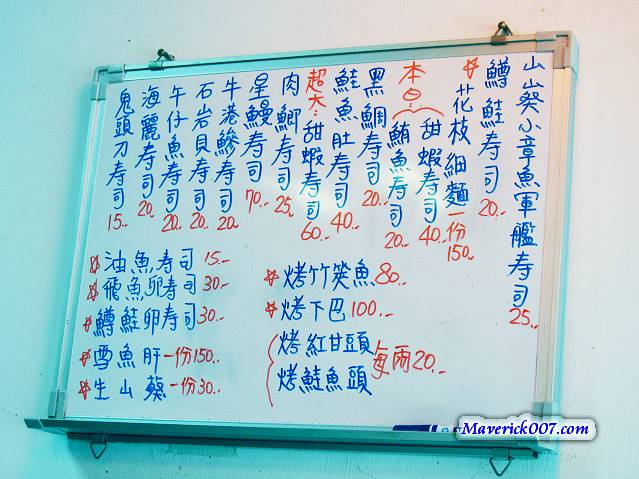 山山葵小章魚軍艦壽司25..
☆鱒鮭壽司20..
☆花枝細麵一份150..
本日:
甜蝦壽司40..
鮪魚壽司20..
黑鯛壽司20..
鮭魚肚壽司40..
超大:甜蝦壽司60..
肉鯽壽司25..
星鰻壽司70..
牛港鰺壽司20..
石岩貝壽司20..
午仔魚壽司20..
海麗壽司20..
鬼頭刀壽司15..
☆油魚壽司15..
☆飛魚卵壽司30..
☆鱒鮭卵壽司30..
☆雪魚肝一份150..
☆生山葵一份30..
☆烤竹筴魚80..
☆烤下巴100..
烤紅甘頭
烤鮭魚頭
每兩20..
Maverick007.com